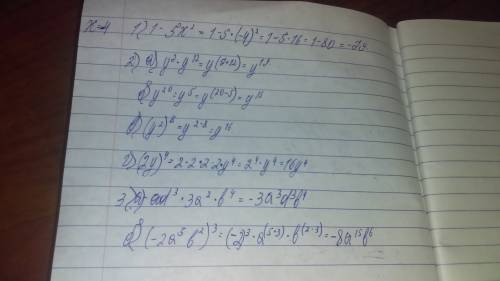 x=-4 1) 1-5x² = 1-5·(-4)² = 1-5·16 = 1-80 = -79.
2) а) y⁷·y¹² = y(7+12) = y¹⁹
б) y²⁰ = y⁵ = y(20-5) = y¹⁵
в) (y²)⁸ = y²·⁸ = y¹⁶
г) (2y)⁴ = 2·2·2·2·y⁴ = 2⁴·y⁴ = 16y⁴
3.) а) ³·3a²·b⁴ = -3a b⁴
б) (-2a⁵b²)³ = (-2)³·a(5·3)·b(2·3) = -8a¹⁵b⁶